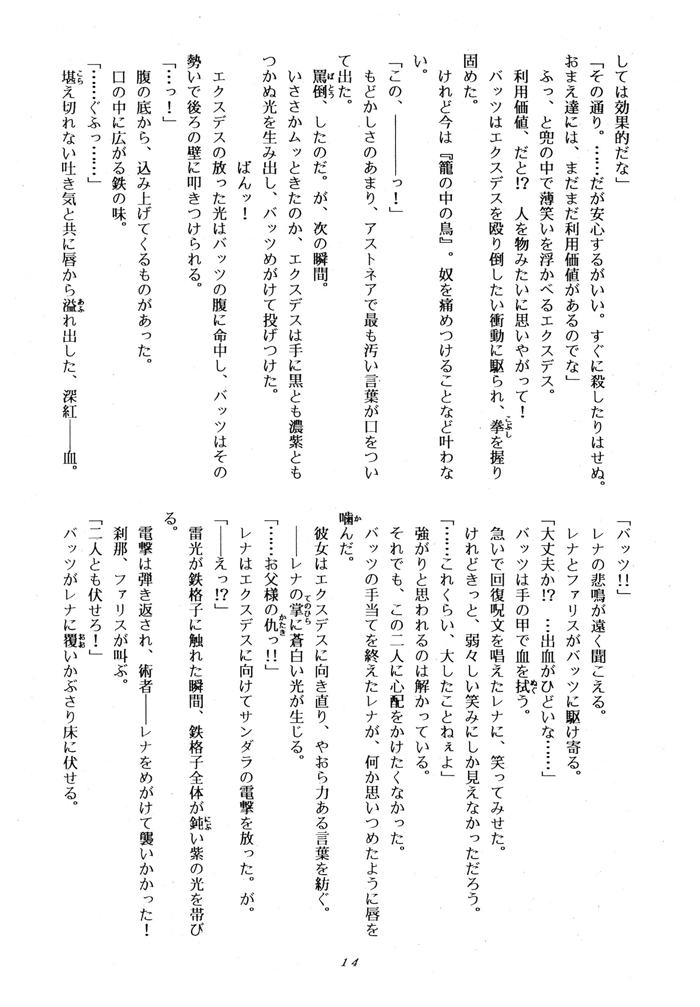 しては効果的だな」
「その通り。……だが安心するがいい。すぐに殺したりはせぬ。
おまえ達には、まだまだ利用価値があるのでな」
ふっ、と兜の中で薄笑いを浮かべるエクスデス。
利用価値、だと!?　人を物みたいに思いやがって！
バッツはエクスデスを殴り倒したい衝動に駆られ、拳を握り
固めた。
けれど今は『籠の中の鳥』。奴を痛めつけることなど叶わな
い。
「この、――――っ！」
もどかしさのあまり、アストネアで最も汚い言葉が口をつい
て出た。
罵倒、したのだ。が、次の瞬間。
いささかムッときたのか、エクスデスは手に黒とも濃紫とも
つかぬ光を生み出し、バッツめがけて投げつけた。
ばんッ！
エクスデスの放った光はバッツの腹に命中し、バッツはその
勢いで後ろの壁に叩きつけられる。
「…っ！」
腹の底から、込み上げてくるものがあった。
口の中に広がる鉄の味。
「……ぐふっ……」
堪え切れない吐き気と共に唇から溢れ出した、深紅――血。
「バッツ!!」
レナの悲鳴が遠く聞こえる。
レナとファリスがバッツに駆け寄る。
「大丈夫か!?　…出血がひどいな……」
バッツは手の甲で血を拭う。
急いで回復呪文を唱えたレナに、笑ってみせた。
けれどきっと、弱々しい笑みにしか見えなかっただろう。
「……これくらい、大したことねぇよ」
強がりと思われるのは解かっている。
それでも、この二人に心配をかけたくなかった。
バッツの手当てを終えたレナが、何か思いつめたように唇を
噛んだ。
彼女はエクスデスに向き直り、やおら力ある言葉を紡ぐ。
――レナの掌に蒼白い光が生じる。
「……お父様の仇っ!!」
レナはエクスデスに向けてサンダラの電撃を放った。が。
「――えっ!?」
雷光が鉄格子に触れた瞬間、鉄格子全体が鈍い紫の光を帯び
る。
電撃は弾き返され、術者――レナをめがけて襲いかかった！
刹那、ファリスが叫ぶ。
「二人とも伏せろ！」
バッツがレナに覆いかぶさり床に伏せる。
14